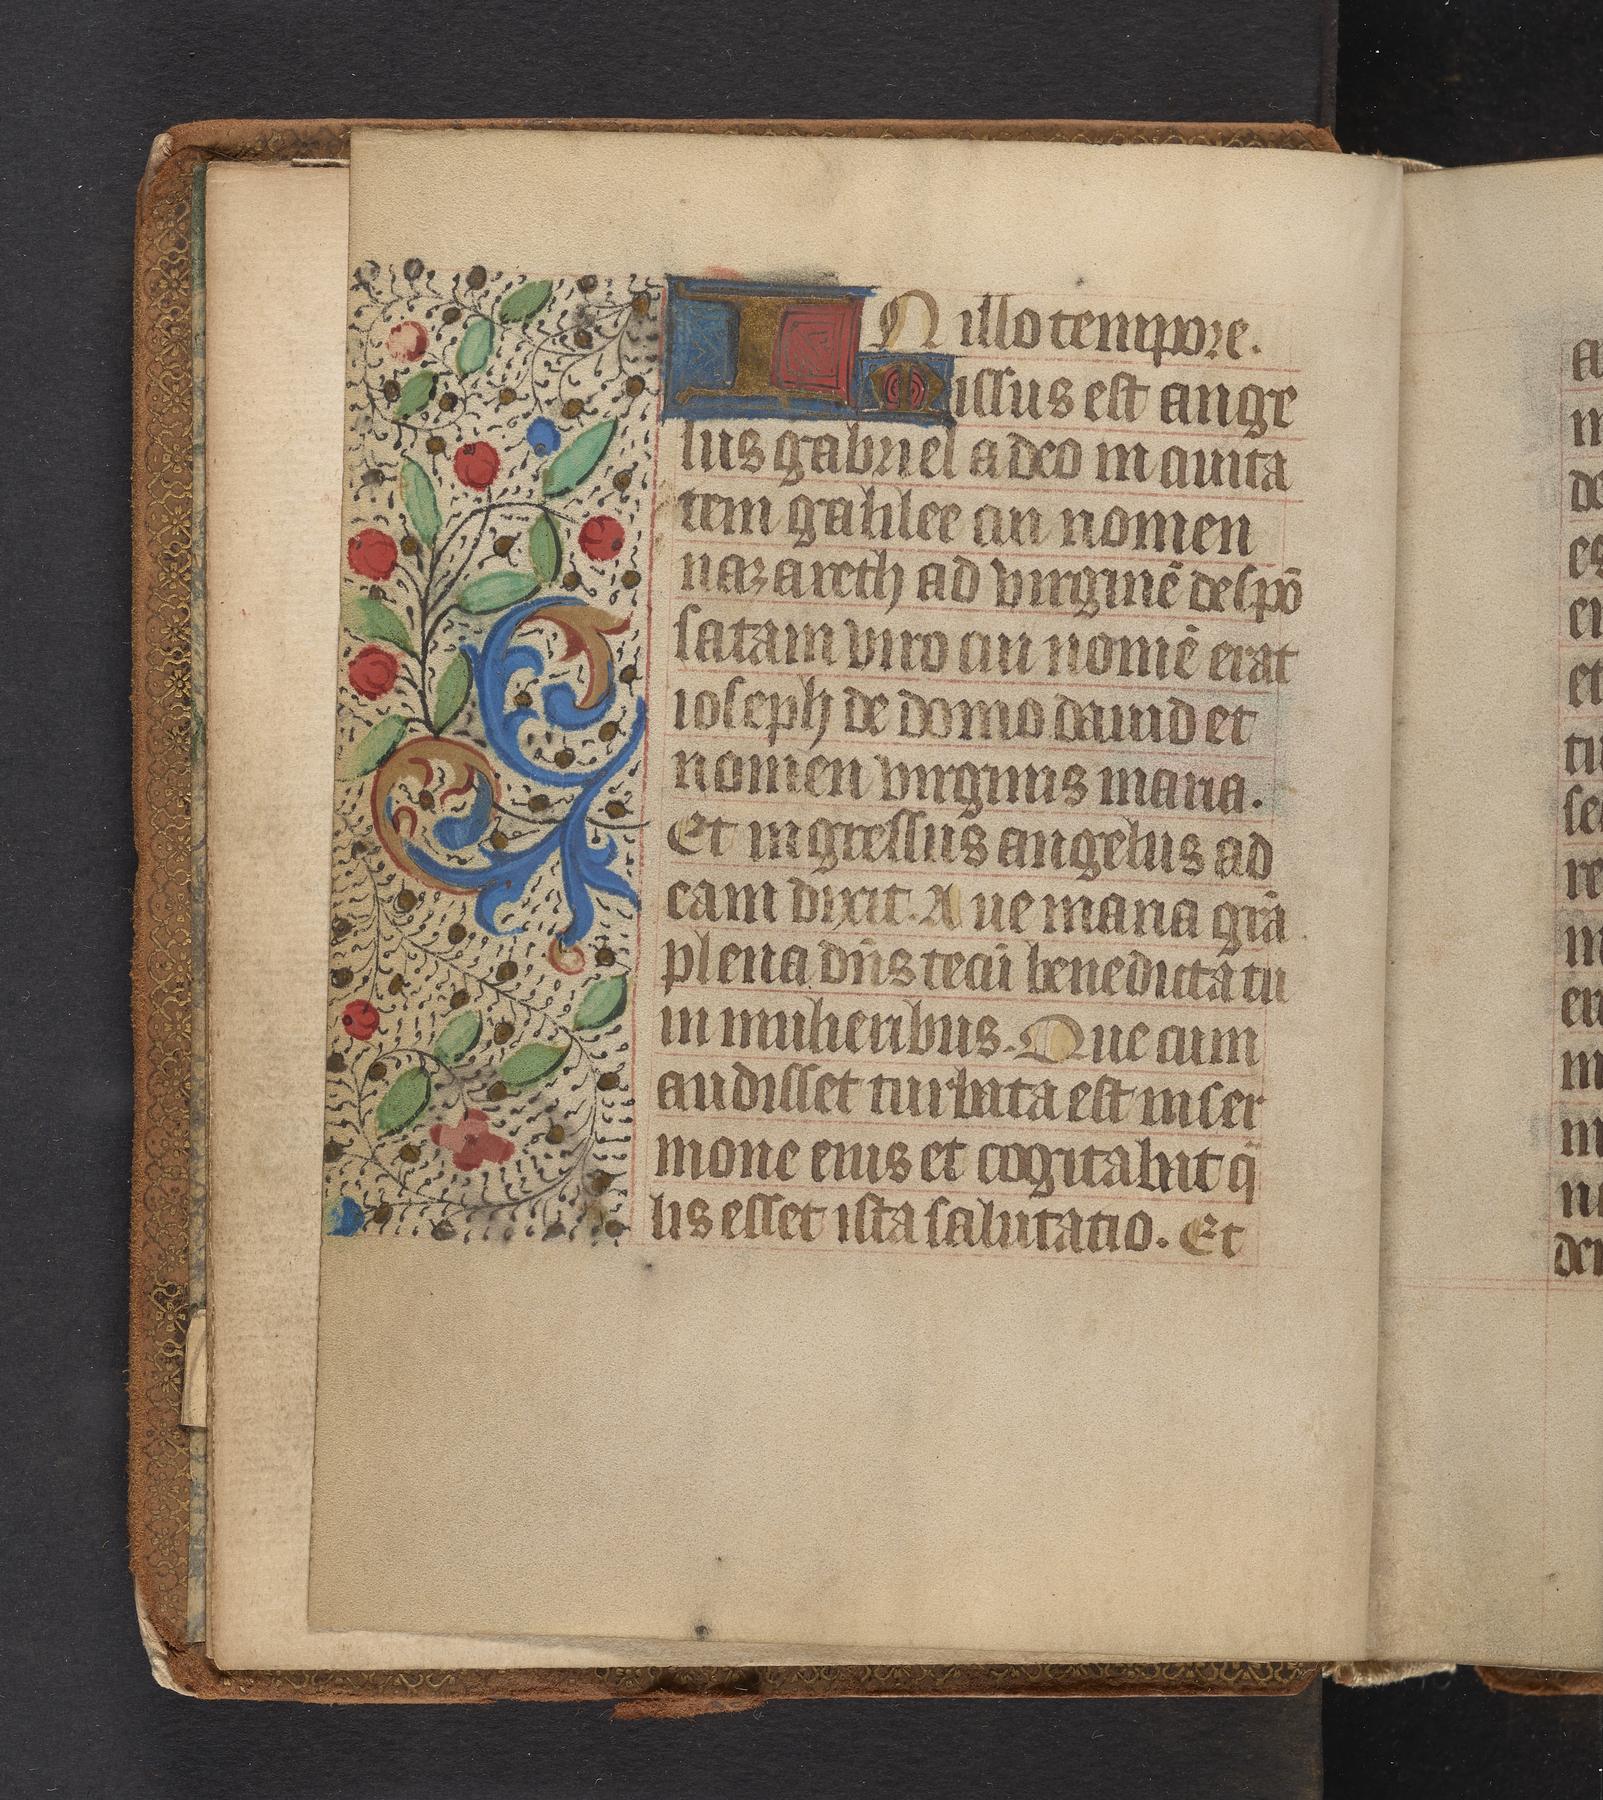 IN illo tempore.
Missus est ange
lus gabriel a deo in ciuita
tem galilee cui nomen
nazareth ad virginē despō
satam viro cui nomē erat
ioseph de domo dauid et
nomen virginis maria.
Et ingressus angelus ad
eam dixit. Aue maria grā
plena dn̄s tecū benedicta tu
in mulieribus. Que cum
audisset turbata est in ser
mone eius et cogitabat q̄
lis esset ista salutatio. Et